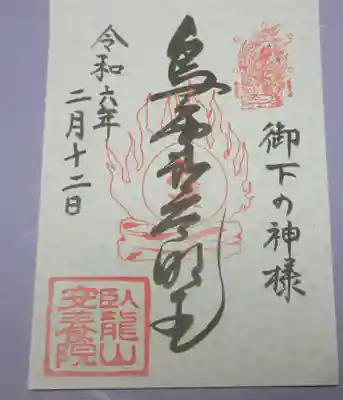 御下の神様
烏
明王
令和六年
二月十二日
臥龍山
安養院